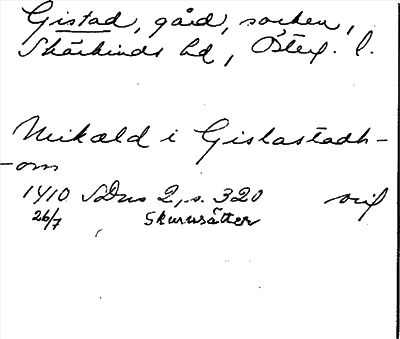 Gistad, gård, socken,
Skärkinds hd, Östergl. l.
Mikæld i Gislastadh-
-om
1410 SDns 2, s. 320 orig
26/7 Skurusätter